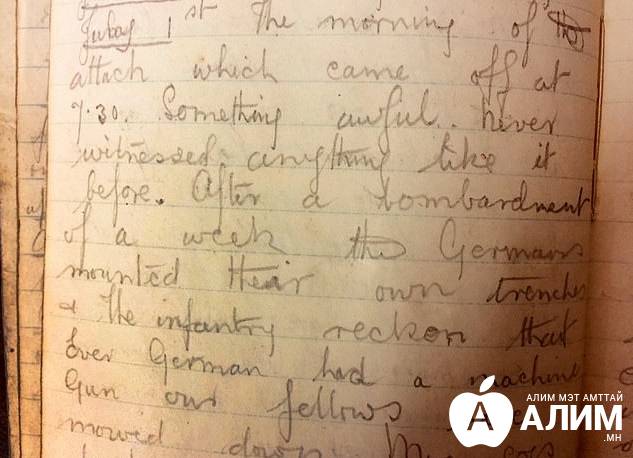 July 1st The morning of the
attack which came off at
7.30. Something awful. never
witnessed anything like it
before. After a bombardment
of a week the Germans
mounted their own trenches
& the infantry reckon that
Ever German had a machine
Gun our fellows
mowed down
АЛИМ МЭТ АМТТАЙ
АЛИМ
.МН